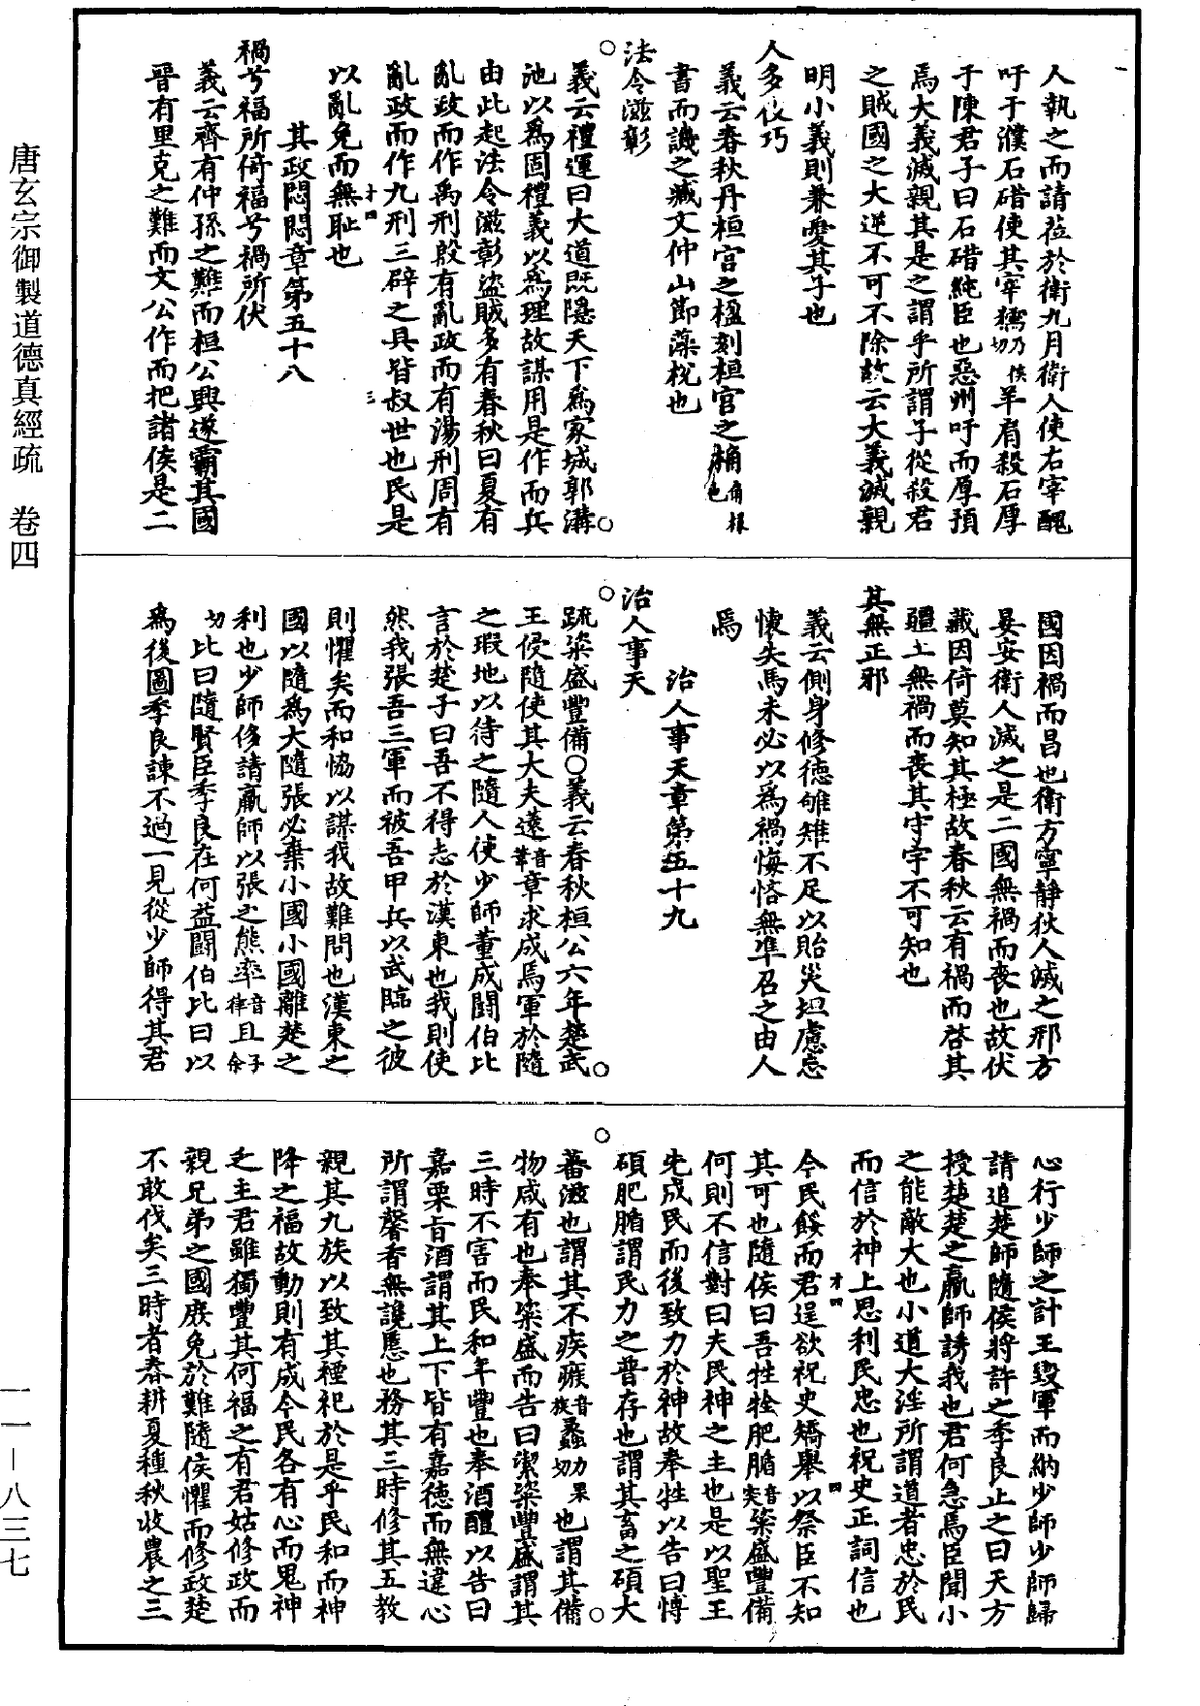 人執之而請蒞於衛九月衛人使右宰醜
吁于濮石碏使其宰獳乃侯切羊肩殺石厚
于陳君子曰石碏純臣也惡州吁而厚預
焉大義滅親其是之謂乎所謂子從殺君
之賊國之大逆不可不除故云大義滅親
明小義則兼愛其子也
人多伎巧
義云春秋丹桓宮之楹刻桓宮之桷角椽
書而譏之臧文仲山節藻梲也
法令滋彰
義云禮運曰大道既隱天下為家城郭溝
池以為固禮義以為理故謀用是作而兵
由此起法令滋彰盜賊多有春秋曰夏有
亂政而作禹刑殷有亂政而有湯刑周有
亂政而作九刑三辟之具皆叔世也民是
以亂免而無恥也
其政悶悶章第五十八
禍兮福所倚福兮禍所伏
義云齊有仲孫之難而桓公興遂霸其國
晉有里克之難而文公作而把諸侯是二
國因禍而昌也衛方寧靜狄人滅之邢方
晏安衛人滅之是二國無禍而喪也故伏
藏因倚莫知其極故春秋云有禍而啓其
疆土無禍而喪其守宇不可知也
其無正邪
義云側身修德雊雉不足以貽災坦慮忘
懷失馬未必以為禍悔悋無準召之由人
焉
治人事天章第五十九
治人事天
疏粢盛豐備○義云春秋桓公六年楚武
王侵隨使其大夫薳音葦章求成焉軍於隨
之瑕地以待之隨人使少師董成鬬伯比
言於楚子曰吾不得志於漢東也我則使
然我張吾三軍而被吾甲兵以武臨之彼
則懼矣而和協以謀我故難間也漢東之
國以隨為大隨張必棄小國小國離楚之
利也少師侈請羸師以張之熊率音律且子余
切比曰隨賢臣季良在何益鬬伯比曰以
為後圖季良諫不過一見從少師得其君
心行少師之計王毀軍而納少師少師歸
請追楚師隨侯將許之季良止之曰天方
授楚楚之羸師誘我也君何急焉臣聞小
之能敵大也小道大淫所謂道者忠於民
而信於神上思利民忠也祝史正詞信也
今民餒而君逞欲祝史矯舉以祭臣不知
其可也隨侯曰吾牲牷肥腯音突粢盛豐備
何則不信對曰夫民神之主也是以聖王
先成民而後致力於神故奉牲以告曰博
碩肥腯謂民力之普存也謂其畜之碩大
蕃滋也謂其不疾瘯音族蠡力果切也謂其備
物咸有也奉粢盛而告曰潔粢豐盛謂其
三時不害而民和年豐也奉酒醴以告曰
嘉栗旨酒謂其上下皆有嘉德而無違心
所謂馨香無讒慝也務其三時修其五教
親其九族以致其禋祀於是乎民和而神
降之福故動則有成今民各有心而鬼神
乏主君雖獨豐其何福之有君姑修政而
親兄弟之國庶免於難隨侯懼而修政楚
不敢伐矣三時者春耕夏種秋收農之三
唐玄宗御製道德真經疏　卷四
一一－八三七